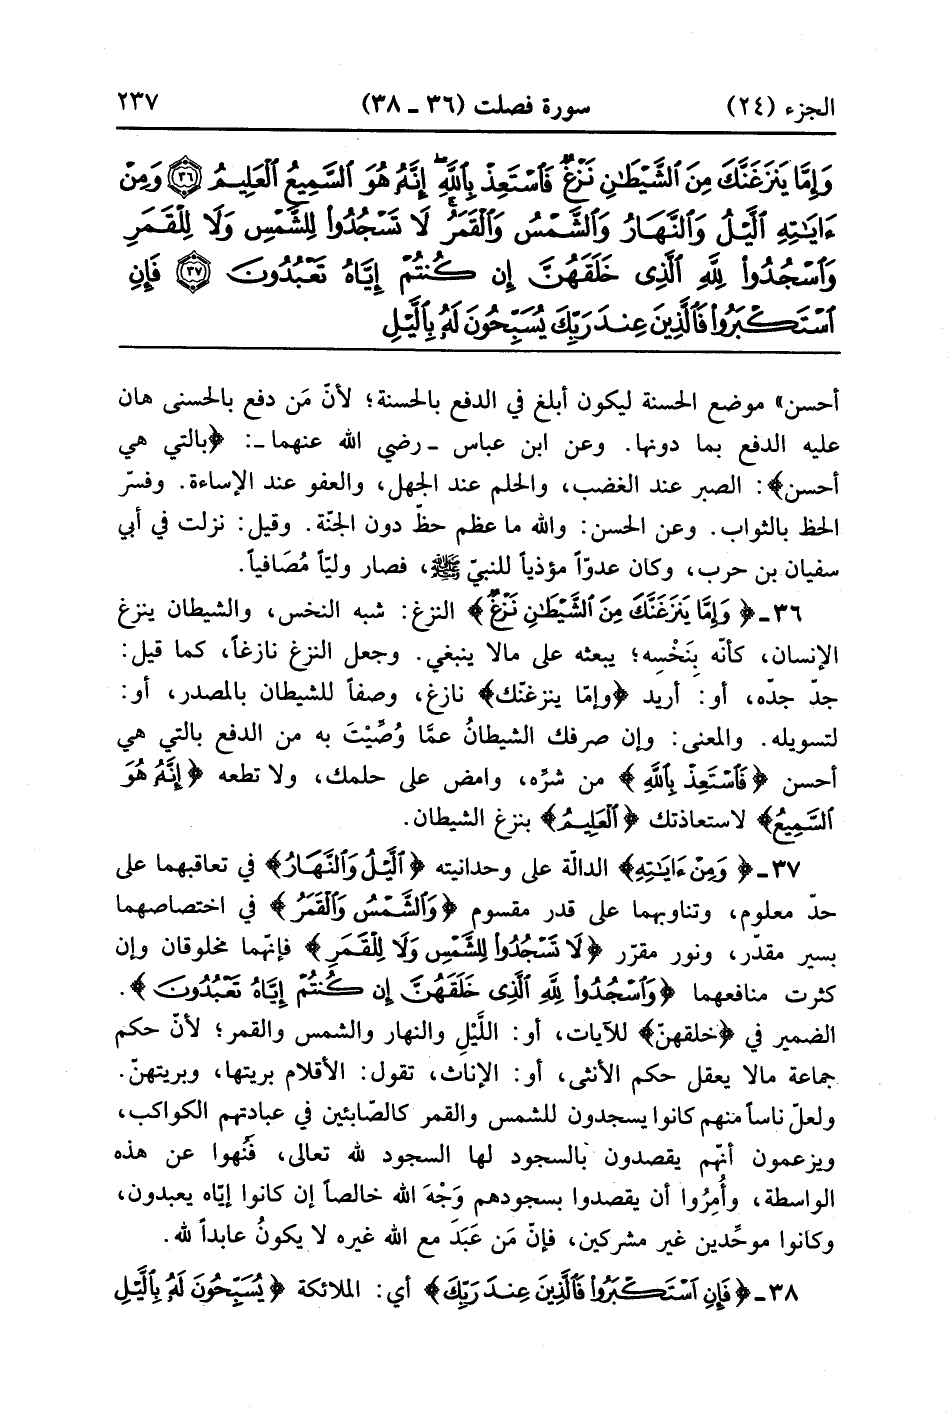 الجزء (٢٤) سورة فصلت (٣٦ ـ ٣٨) ٢٣٧
وَإِمَّا يَنزَغَنَّكَ مِنَ ٱلشَّيْطَٰنِ نَزْغٌ فَٱسْتَعِذْ بِٱللَّهِ إِنَّهُۥ هُوَ ٱلسَّمِيعُ ٱلْعَلِيمُ ﴿٣٦﴾ وَمِنْ
ءَايَٰتِهِ ٱلَّيْلُ وَٱلنَّهَارُ وَٱلشَّمْسُ وَٱلْقَمَرُ لَا تَسْجُدُوا۟ لِلشَّمْسِ وَلَا لِلْقَمَرِ
وَٱسْجُدُوا۟ لِلَّهِ ٱلَّذِى خَلَقَهُنَّ إِن كُنتُمْ إِيَّاهُ تَعْبُدُونَ ﴿٣٧﴾ فَإِنِ
ٱسْتَكْبَرُوا۟ فَٱلَّذِينَ عِندَ رَبِّكَ يُسَبِّحُونَ لَهُۥ بِٱلَّيْلِ
أحسن» موضع الحسنة ليكون أبلغ في الدفع بالحسنة؛ لأنّ مَن دفع بالحسنى هان
عليه الدفع بما دونها. وعن ابن عباس ـ رضي الله عنهما ـ: ﴿بالتي هي
أحسن﴾: الصبر عند الغضب، والحلم عند الجهل، والعفو عند الإساءة. وفسّر
الحظ بالثواب. وعن الحسن: والله ما عظم حظّ دون الجنّة. وقيل: نزلت في أبي
سفيان بن حرب، وكان عدوّاً مؤذياً للنبيّ ﷺ، فصار وليّاً مُصَافياً.
٣٦ ـ ﴿وَإِمَّا يَنزَغَنَّكَ مِنَ ٱلشَّيْطَٰنِ نَزْغٌ﴾ النزغ: شبه النخس، والشيطان ينزغ
الإنسان، كأنّه يَنخُسه؛ يبعثه على مالا ينبغي. وجعل النزغ نازغاً، كما قيل:
جدّ جدّه، أو: أريد ﴿وإمّا ينزغنّك﴾ نازغ، وصفاً للشيطان بالمصدر، أو:
لتسويله. والمعنى: وإن صرفك الشيطانُ عمَّا وُصِّيْتَ به من الدفع بالتي هي
أحسن ﴿فَٱسْتَعِذْ بِٱللَّهِ﴾ من شرِّه، وامض على حلمك، ولا تطعه ﴿إِنَّهُۥ هُوَ
ٱلسَّمِيعُ﴾ لاستعاذتك ﴿ٱلْعَلِيمُ﴾ بنزغ الشيطان.
٣٧ ـ ﴿وَمِنْ ءَايَٰتِهِ﴾ الدالّة على وحدانيته ﴿ٱلَّيْلُ وَٱلنَّهَارُ﴾ في تعاقبهما على
حدّ معلوم، وتناوبهما على قدر مقسوم ﴿وَٱلشَّمْسُ وَٱلْقَمَرُ﴾ في اختصاصهما
بسير مقدّر، ونور مقرّر ﴿لَا تَسْجُدُوا۟ لِلشَّمْسِ وَلَا لِلْقَمَرِ﴾ فإنّهما مخلوقان وإن
كثرت منافعهما ﴿وَٱسْجُدُوا۟ لِلَّهِ ٱلَّذِى خَلَقَهُنَّ إِن كُنتُمْ إِيَّاهُ تَعْبُدُونَ﴾.
الضمير في ﴿خلقهنّ﴾ للآيات، أو: اللَّيْلِ والنهار والشمس والقمر؛ لأنّ حكم
جماعة مالا يعقل حكم الأنثى، أو: الإناث، تقول: الأقلام بريتها، وبريتهنّ.
ولعلّ ناساً منهم كانوا يسجدون للشمس والقمر كالصّابئين في عبادتهم الكواكب،
ويزعمون أنّهم يقصدون بالسجود لها السجود لله تعالى، فَنُهوا عن هذه
الواسطة، وأُمِرُوا أن يقصدوا بسجودهم وَجْهَ الله خالصاً إن كانوا إيّاه يعبدون،
وكانوا موحِّدين غير مشركين، فإنّ مَن عَبَدَ مع الله غيره لا يكونُ عابداً لله.
٣٨ ـ ﴿فَإِنِ ٱسْتَكْبَرُوا۟ فَٱلَّذِينَ عِندَ رَبِّكَ﴾ أي: الملائكة ﴿يُسَبِّحُونَ لَهُۥ بِٱلَّيْلِ